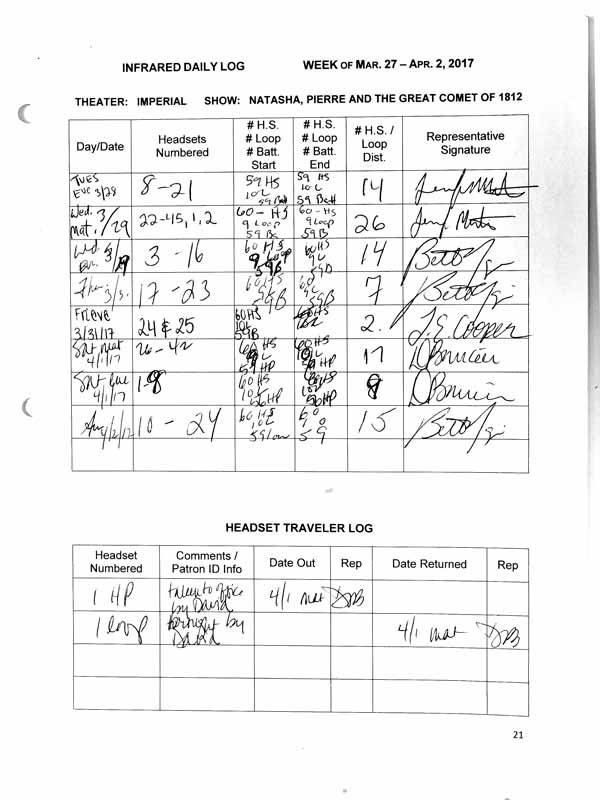 INFRARED DAILY LOG WEEK OF MAR. 27 – APR. 2, 2017
THEATER: IMPERIAL SHOW: NATASHA, PIERRE AND THE GREAT COMET OF 1812
Day/Date
Headsets
Numbered
# H.S.
# Loop
# Batt.
Start
# H.S.
# Loop
# Batt.
End
# H.S. /
Loop
Dist.
Representative
Signature
TUES
Eve 3/28
8 - 21
59 HS
10 L
59 Batt
59 HS
10 L
59 Batt
14
Wed. 3/29
Mat.
22-45, 1, 2
60 - HS
9 Loop
59 Ba
60 - HS
9 Loop
59 B
26
Wed. 3/29
Ev.
3 - 16
60 HS
9 Loop
59B
60HS
9L
59B
14
17 - 23
60HS
59B
60HS
59B
7
Fri eve
3/31/17
24 & 25
60HS
10L
59B
60HS
2.
J.S. Cooper
Sat mat
4/1/17
26 - 42
60 HS
59 HP
60 HS
17
Sat eve
4/1/17
1-8
60 HS
10L
60HS
10L
8
4/2/17
10 - 24
60 HS
10L
60
59
15
HEADSET TRAVELER LOG
Headset
Numbered
Comments /
Patron ID Info
Date Out
Rep
Date Returned
Rep
1 HP
taken to office
by David
4/1 mat
DB
1 loop
brought by
David
4/1 mat
DB
21